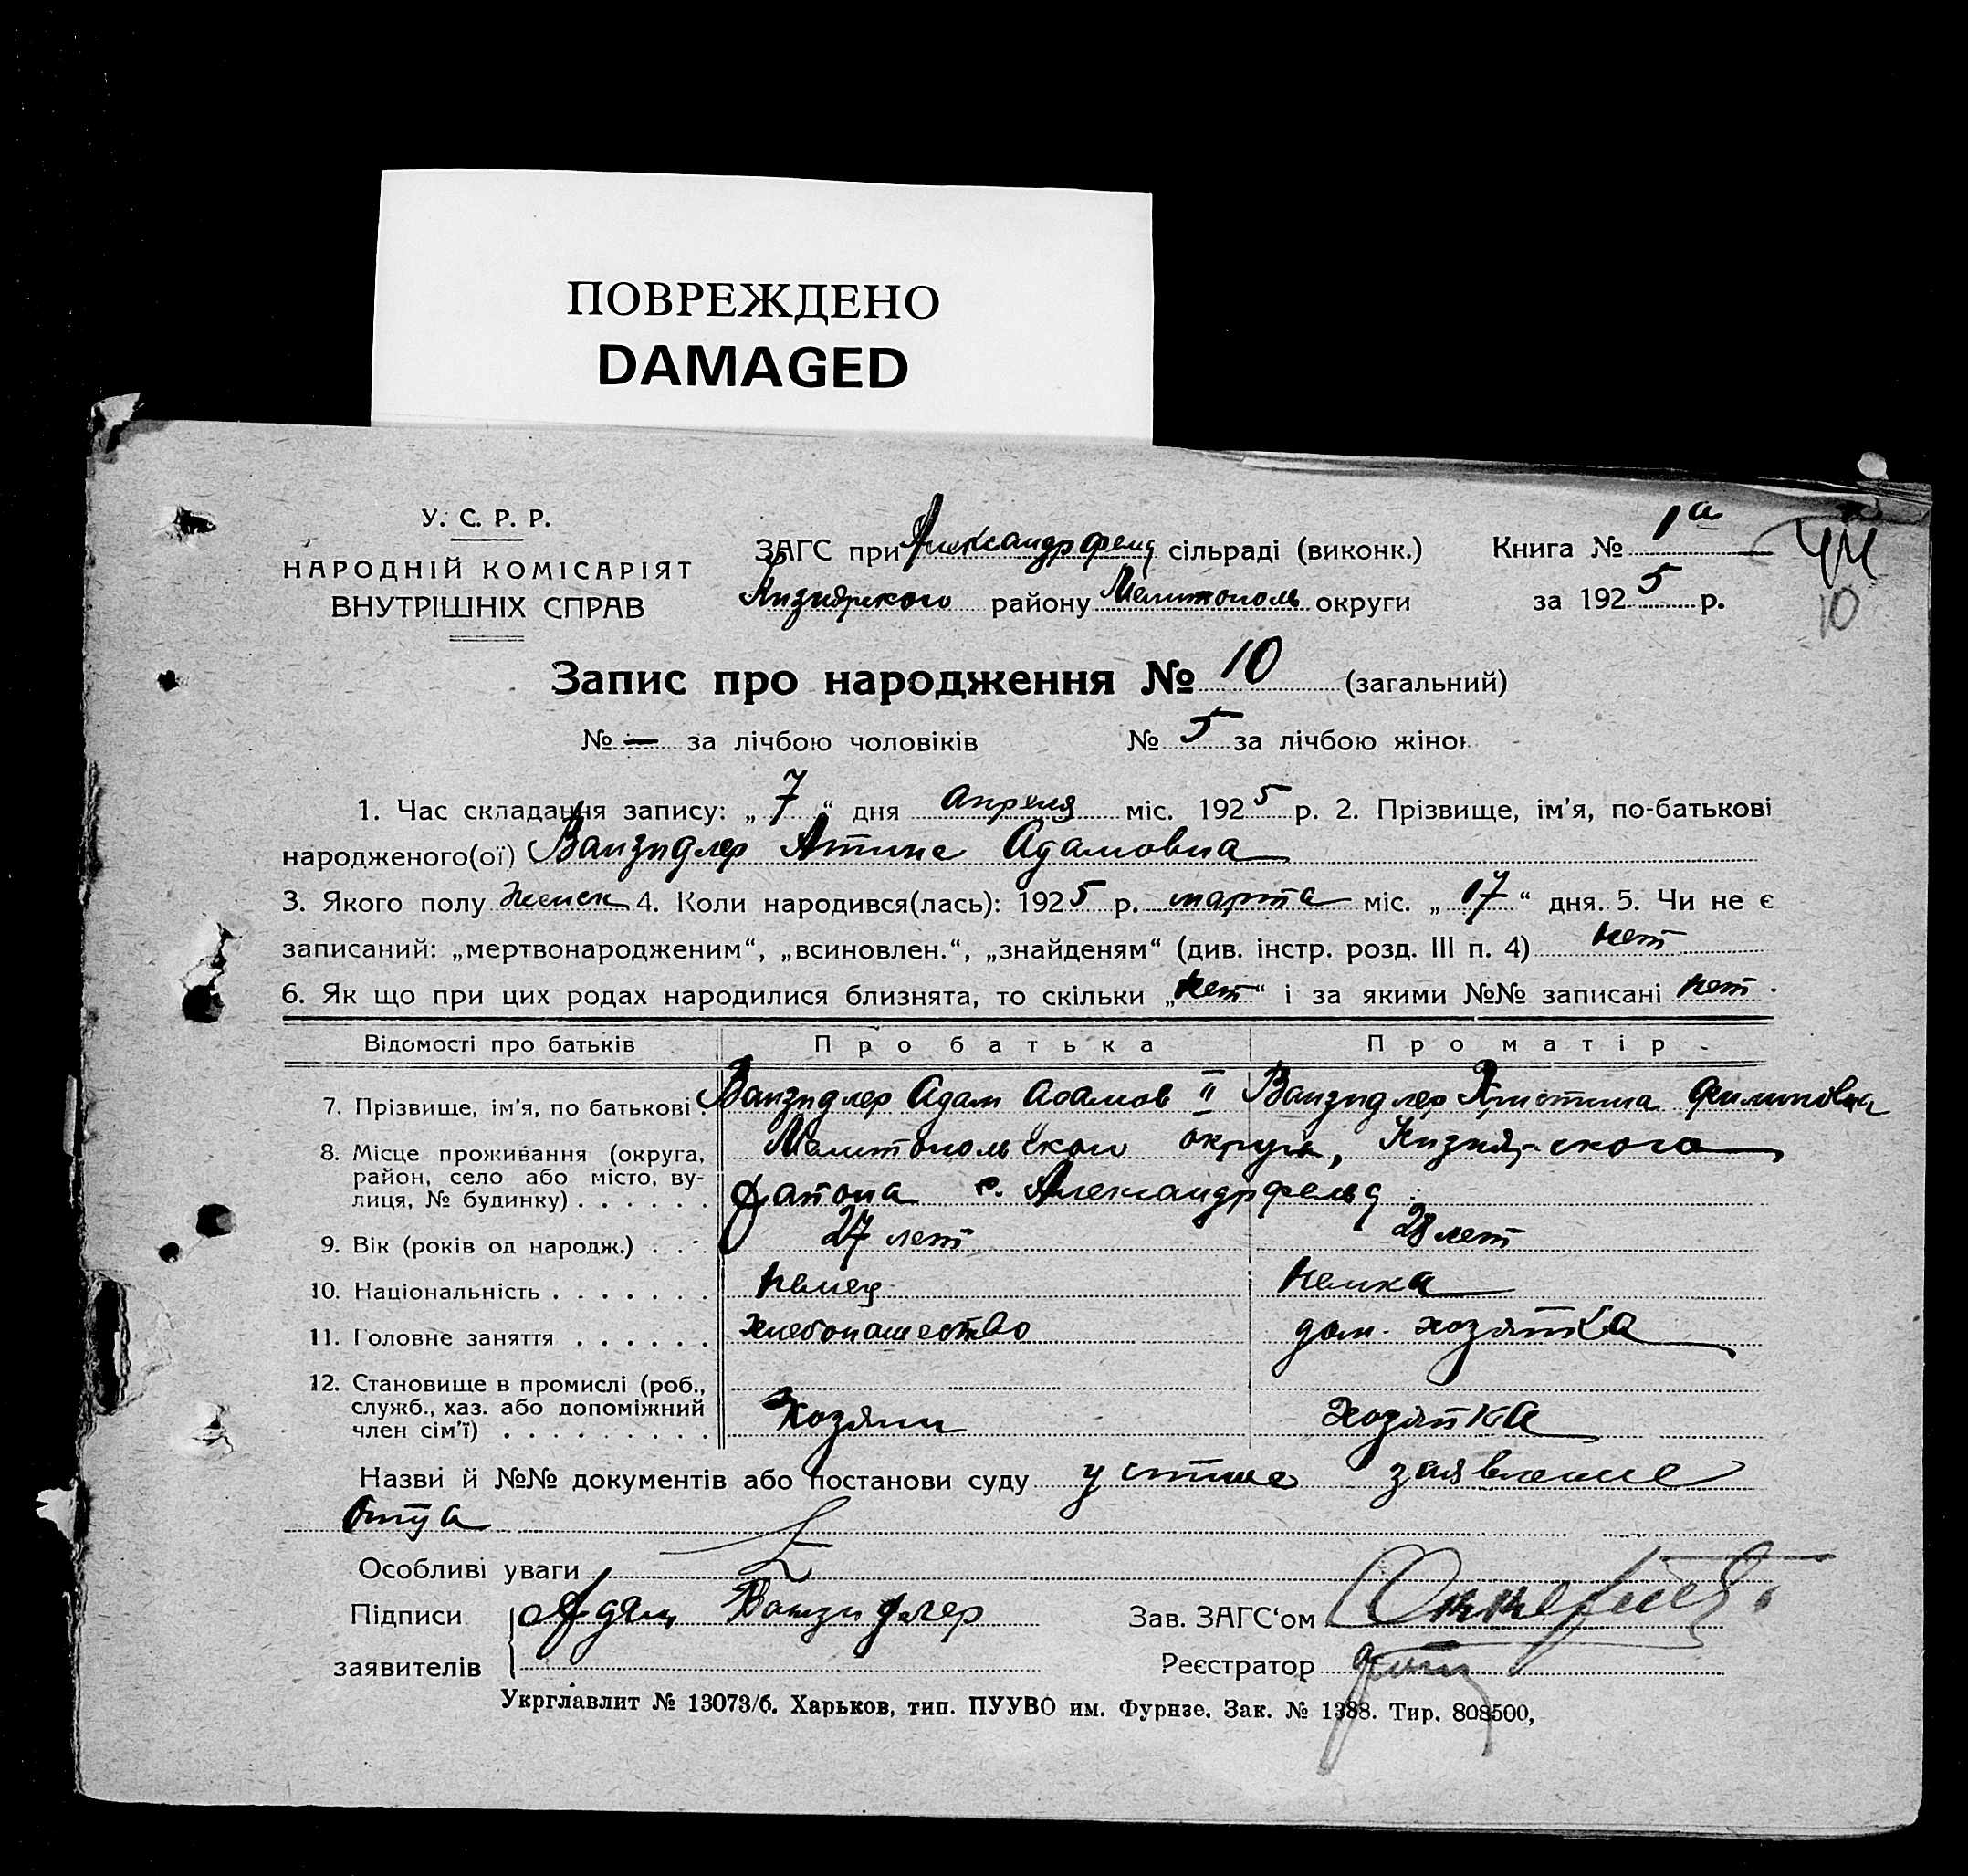 ПОВРЕЖДЕНО
DAMAGED
У. С. Р. Р.
НАРОДНІЙ КОМІСАРІЯТ
ВНУТРІШНІХ СПРАВ
ЗАГС при Александрфельд сільраді (виконк.)
Кизиярского району Мелитополь округи
Книга № 1а
за 1925 р.
44
10
Запис про народження № 10 (загальний)
№ — за лічбою чоловіків № 5 за лічбою жінок
1. Час складання запису: „ 7 “ дня апреля міс. 1925 р. 2. Прізвище, ім'я, по-батькові
народженого(ої) Ванзидлер Адамовна
3. Якого полу женск 4. Коли народився(лась): 1925 р. марта міс. „ 17 “ дня. 5. Чи не є
записаний: „мертвонародженим“, „всиновлен.“, „знайденям“ (див. інстр. розд. III п. 4) нет
6. Як що при цих родах народилися близнята, то скільки „нет“ і за якими №№ записані нет.
Відомості про батьків Про батька Про матір.
7. Прізвище, ім'я, по батькові Ванзидлер Адам Адамов II Ванзидлер Кристина Филиповна
8. Місце проживання (округа, район, село або місто, вулиця, № будинку) . . . . . . Мелитопольского округа, Кизиярского
района с. Александрфельд
9. Вік (років од народж.) . . . 27 лет 28 лет
10. Національність . . . . . . . немец немка
11. Головне заняття . . . . . . хлебопашество дом. хозяйка
12. Становище в промислі (роб., служб., хаз. або допоміжний член сім'ї) . . . . . . . . . Хозяин хозяйка
Назви й №№ документів або постанови суду устное заявление
отца
Особливі уваги
Підписи Адам Ванзидлер Зав. ЗАГС‘ом
заявителів Реєстратор
Укрглавлит № 13073/б. Харьков, тип. ПУУВО им. Фурнзе. Зак. № 1388. Тир. 808500,